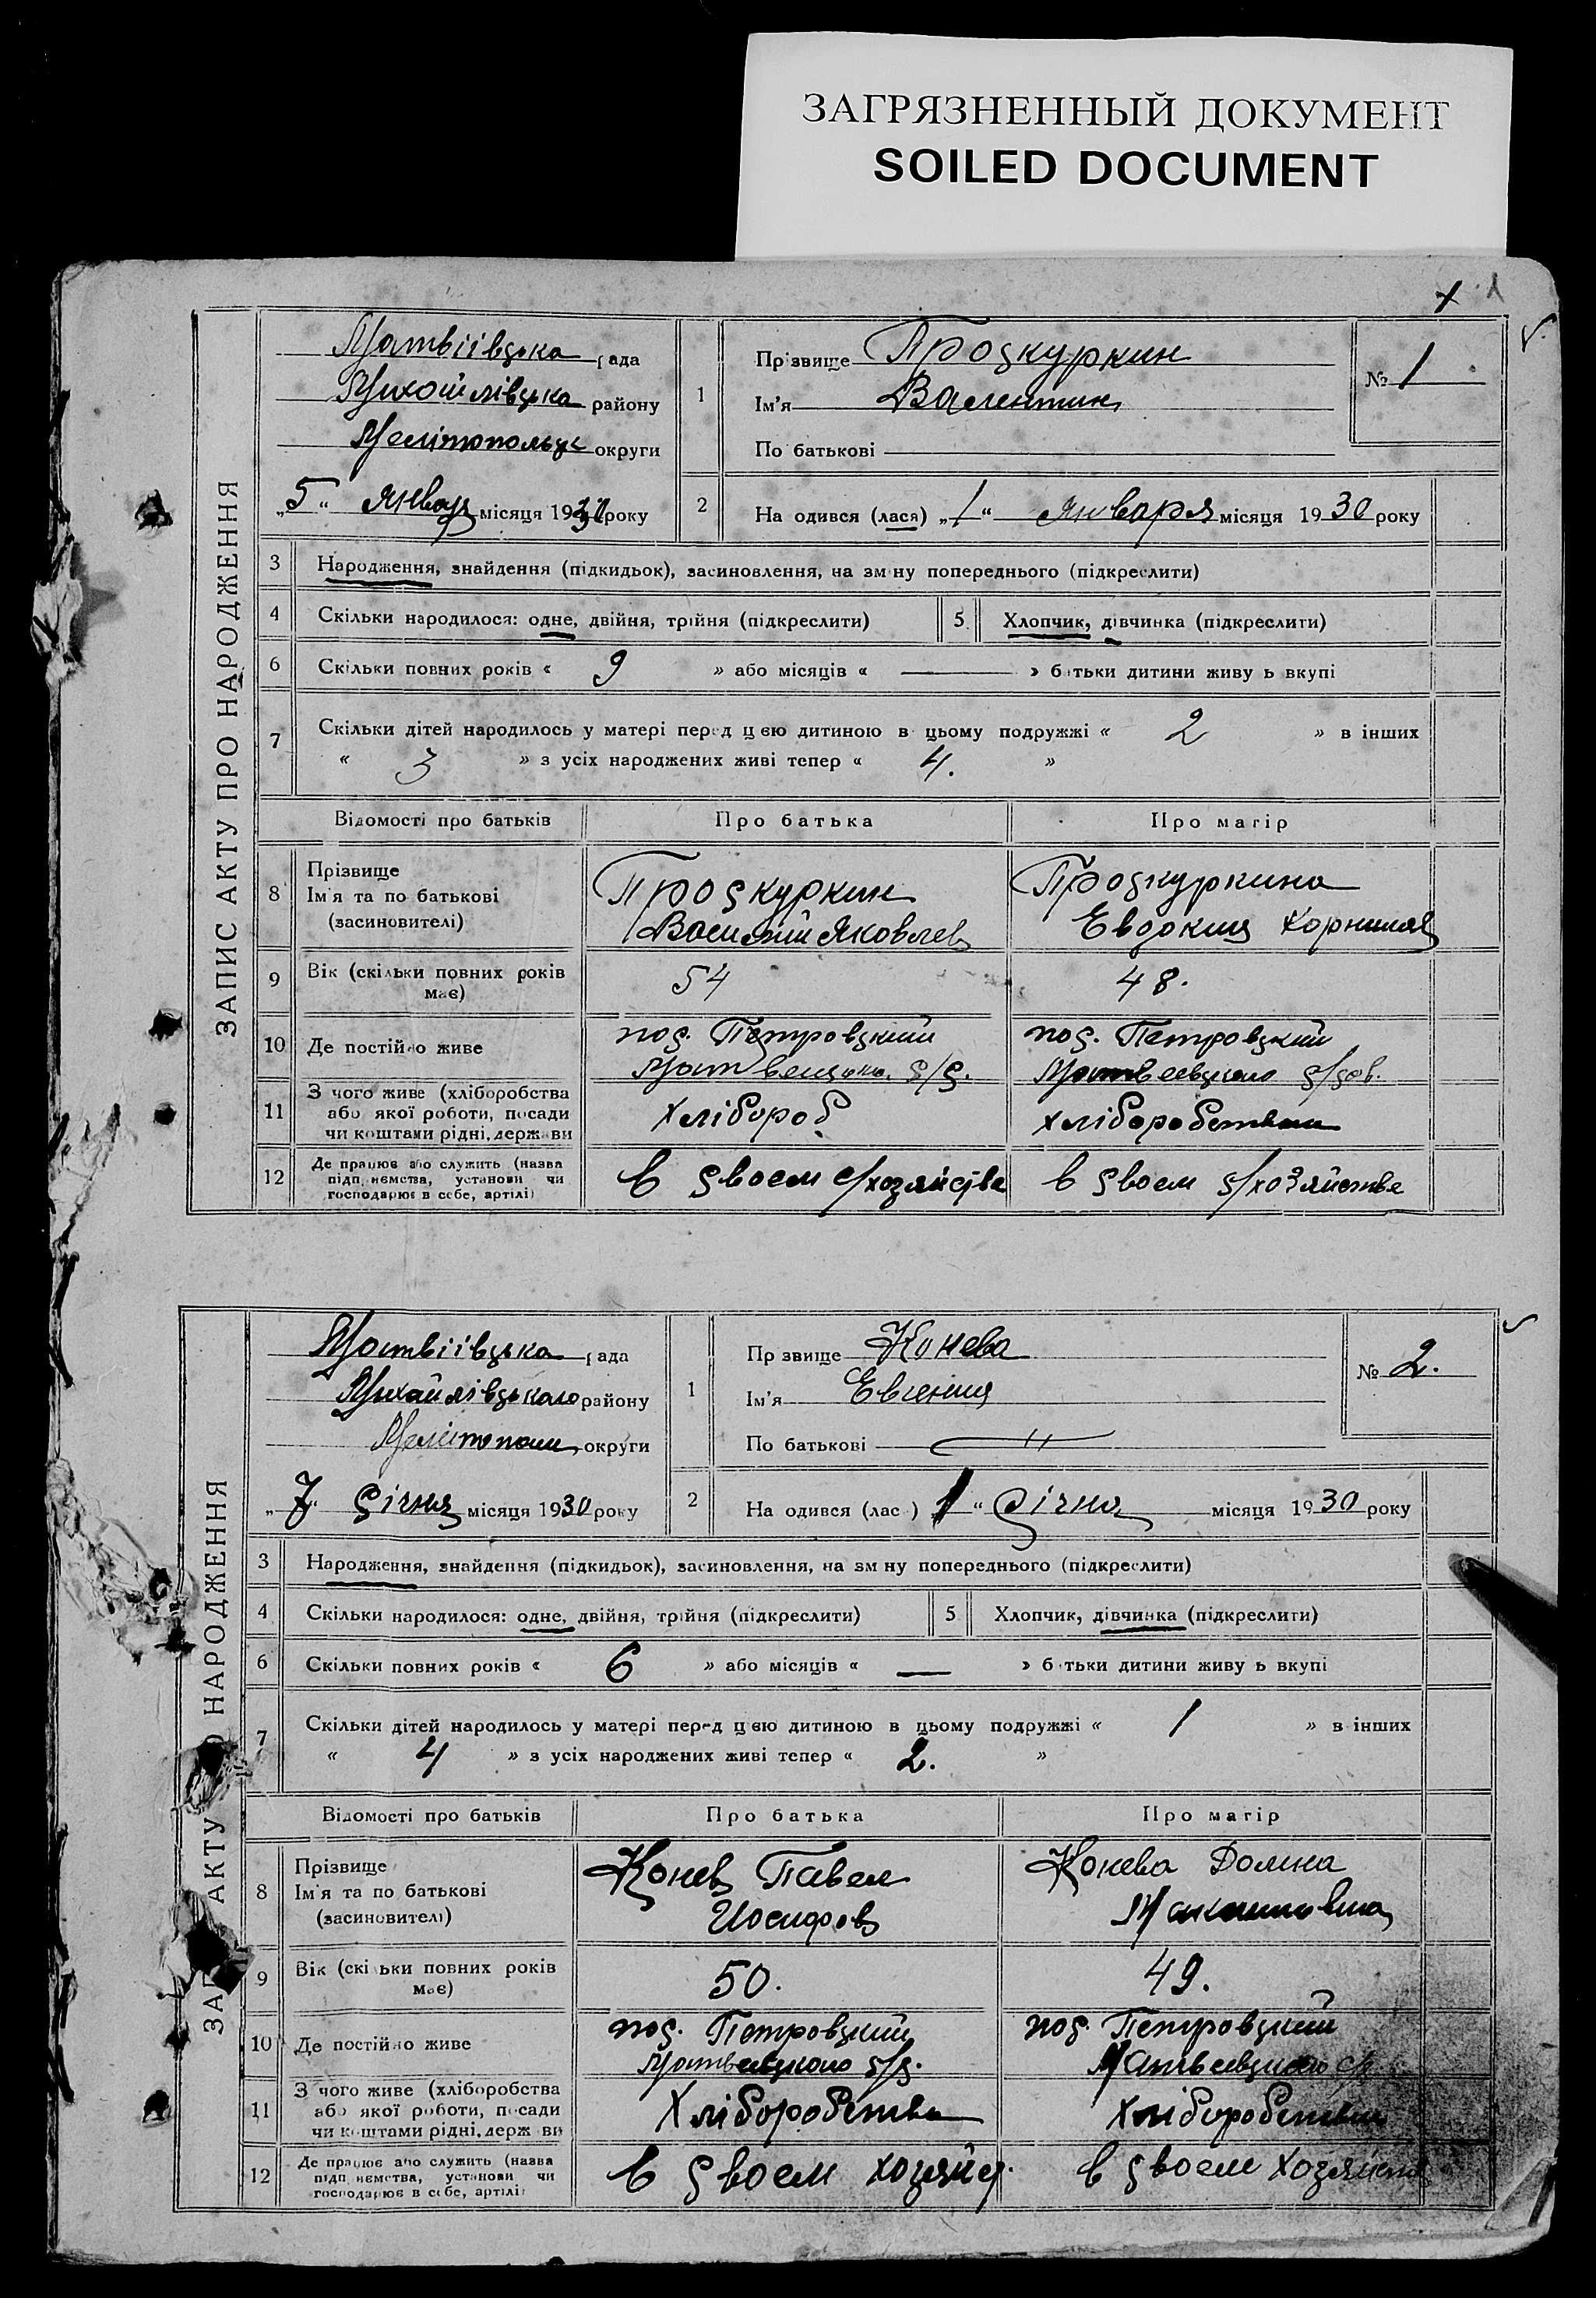 ЗАГРЯЗНЕННЫЙ ДОКУМЕНТ
SOILED DOCUMENT
x 1
ЗАПИС АКТУ ПРО НАРОДЖЕННЯ
Матвіівська рада
Михайлівська району
округи
„5“ Января місяця 19 року
1
Прізвище Проскуркин
Ім'я Валентин
По батькові
№ 1
2
На одився (лася) „1“ января місяця 1930 року
3 Народження, знайдення (підкидьок), засиновлення, на зм ну попереднього (підкреслити)
4 Скільки народилося: одне, двійня, трійня (підкреслити) 5 Хлопчик, дівчинка (підкреслити)
6 Скільки повних років « 9 » або місяців « — » б тьки дитини живу ь вкупі
7 Скільки дітей народилось у матері перед цією дитиною в цьому подружжі « 2 » в інших
« 3 » з усіх народжених живі тепер « 4. »
Відомості про батьків Про батька Про матір
8 Прізвище
Ім'я та по батькові
(засиновителі)
Проскуркин
Василий Яковлев
Проскуркина
Евдокия
9 Вік (скільки повних років
має)
54 48.
10 Де постійно живе
пос. Петровский
с/с.
пос. Петровский
Матвеевского с/сов.
11 З чого живе (хліборобства
або якої роботи, посади
чи коштами рідні, держави
Хлібороб
хліборобством
12 Де працює або служить (назва
підп иємства, установи чи
господарює в себе, артілі)
в своем с/хозяйстве в своем с/хозяйстве
ЗАП АКТУ О НАРОДЖЕННЯ
Матвіівська рада
Михайлівського району
округи
„7“ Січня місяця 1930 року
1
Пр звище Конева
Ім'я Евгения
По батькові — // —
№ 2.
2
На одився (лас ) 1 “ Січня місяця 1930 року
3 Народження, знайдення (підкидьок), засиновлення, на зм ну попереднього (підкреслити)
4 Скільки народилося: одне, двійня, трійня (підкреслити) 5 Хлопчик, дівчинка (підкреслити)
6 Скільки повних років « 6 » або місяців « — » б тьки дитини живу ь вкупі
7 Скільки дітей народилось у матері перед цією дитиною в цьому подружжі « 1 » в інших
« 4 » з усіх народжених живі тепер « 2. »
Відомості про батьків Про батька Про матір
8 Прізвище
Ім'я та по батькові
(засиновителі)
Конев Павел
Иосифов
Конева Домна
9 Вік (скі ьки повних років
має)
50. 49.
10 Де постійно живе
пос. Петровский
Матвеевского с/с.
пос. Петровский
Матвеевского с/с
11 З чого живе (хліборобства
або якої роботи, посади
чи коштами рідні, держ ви
Хліборобства
Хліборобством
12 Де працює або служить (назва
підп иємства, установи чи
господарює в себе, артілі)
в своем хозяйст. в своем хозяйстве